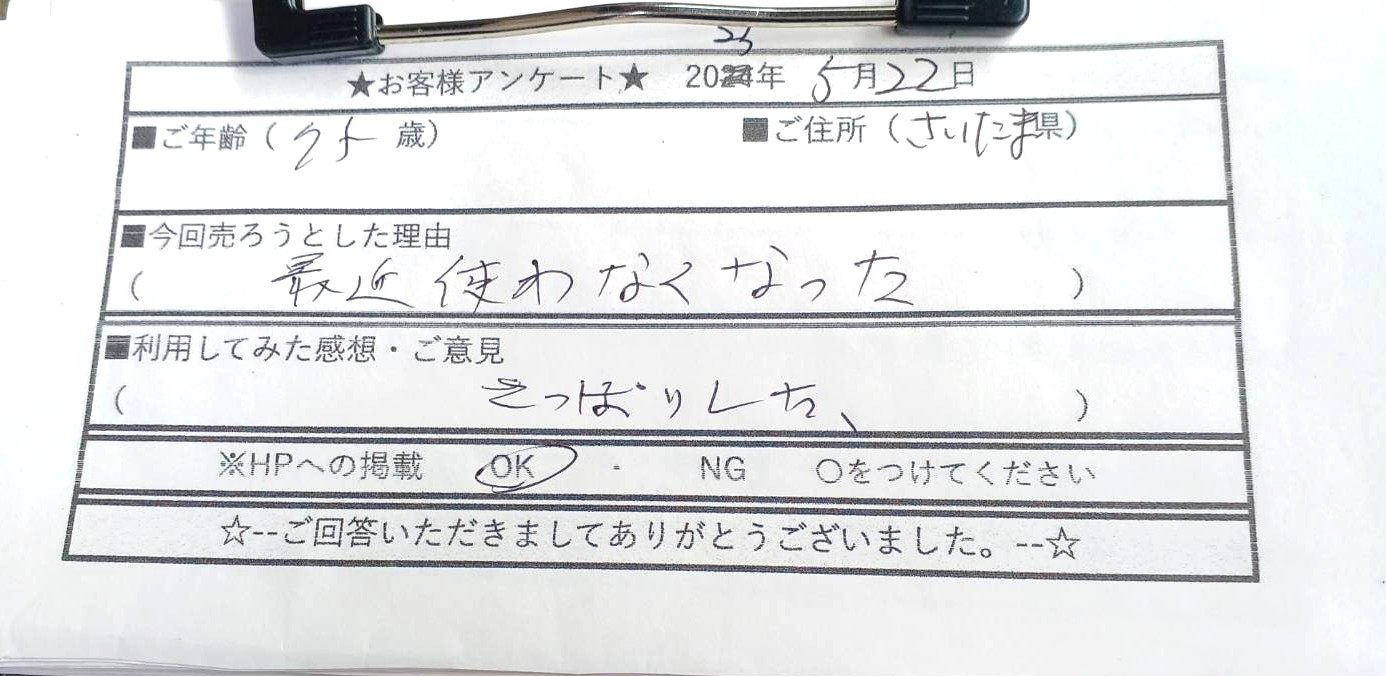 ★お客様アンケート★ 20年 5月22日
■ご年齢（75歳） ■ご住所（さいたま県）
■今回売ろうとした理由
（ 最近使わなくなった ）
■利用してみた感想・ご意見
（ さっぱりした、 ）
※HPへの掲載 OK ・ NG ○をつけてください
☆--ご回答いただきましてありがとうございました。--☆